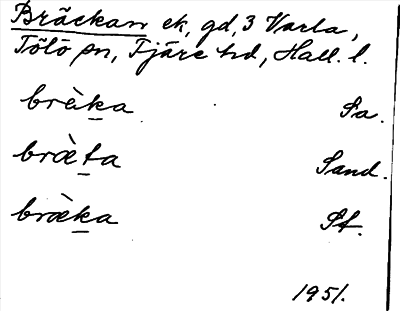 Bräckan ek, gd, 3 Varla,
Tölö sn, Fjäre hd, Hall. l.
brèka Sa.
bræ̀ta Sand.
bræ̀ka Sf.
1951.